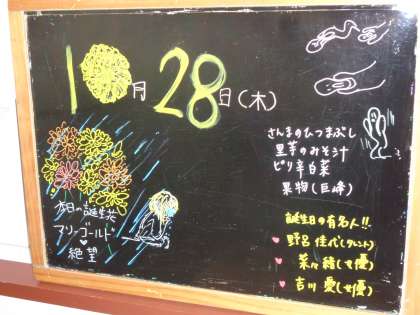 10月28日(木)
さんまのひつまぶし
里芋のみそ汁
ピリ辛白菜
果物(巨峰)
本日の誕生花
マリーゴールド
♥
絶望
誕生日の有名人!!
♥ 野呂 佳代(タレント)
♥ 菜々緒(女優)
♥ 吉川 愛(女優)